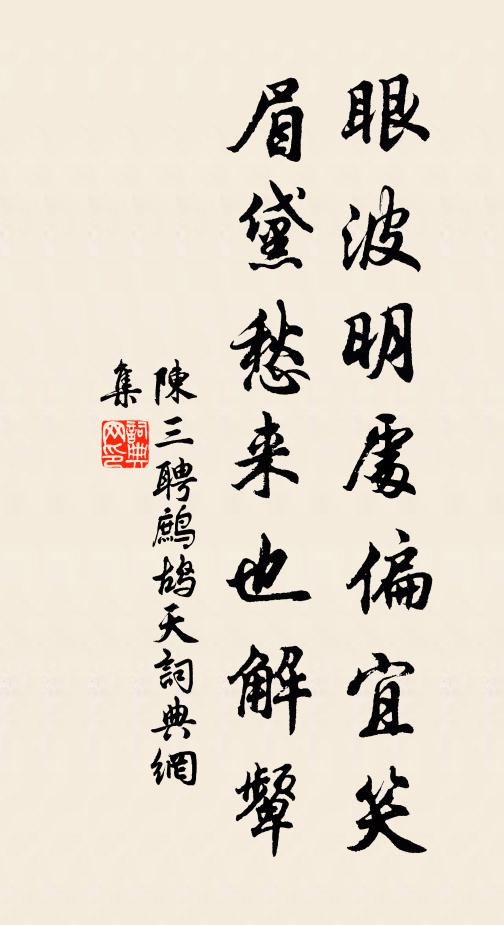 眼波明處偏宜笑
眉黛愁来也解顰
陳三聘鷓鴣天詞典網
集
詞典網印